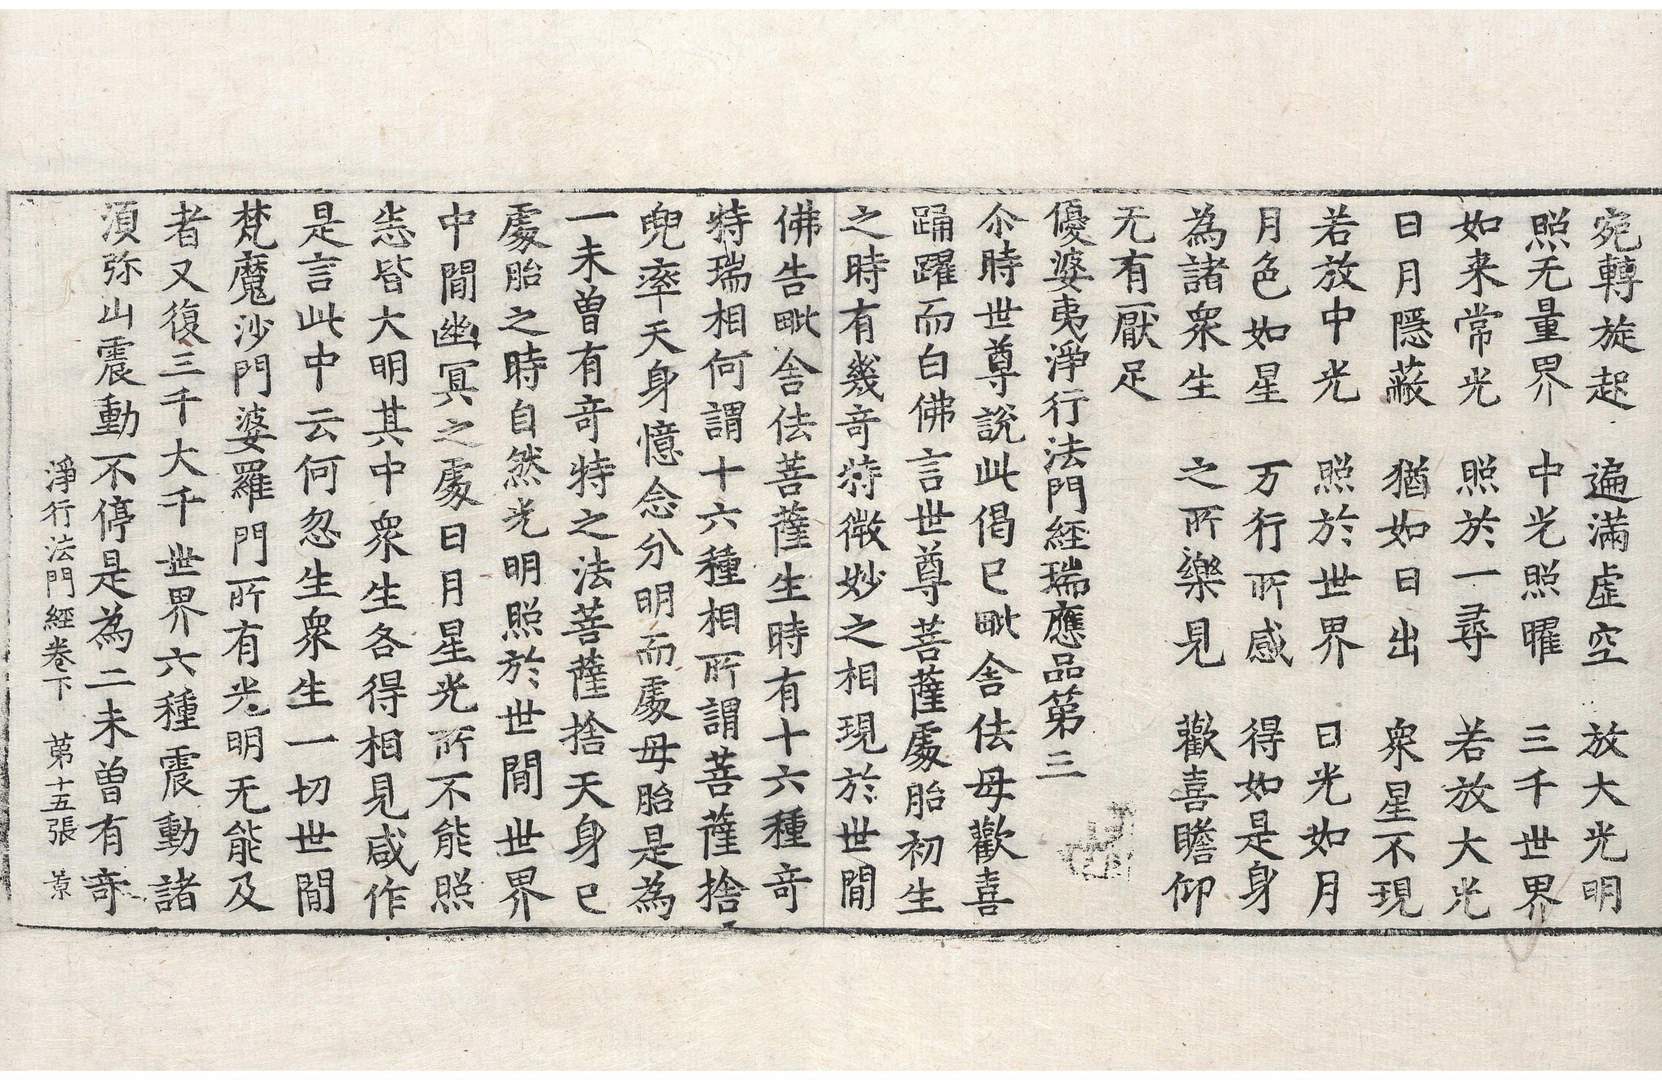 宛轉旋起　遍滿虛空　放大光明
照无量界　中光照曜　三千世界
如来常光　照於一尋　若放大光
日月隱蔽　猶如日出　衆星不現
若放中光　照於世界　日光如月
月色如星　万行所感　得如是身
為諸衆生　之所樂見　歡喜瞻仰
无有厭足
優婆夷淨行法門經瑞應品第三
尒時世尊說此偈已毗舍佉母歡喜
踊躍而白佛言世尊菩薩處胎初生
之時有幾奇特微妙之相現於世閒
佛告毗舍佉菩薩生時有十六種奇
特瑞相何謂十六種相所謂菩薩捨
兜率天身憶念分明而處母胎是為
一未曾有奇特之法菩薩捨天身已
處胎之時自然光明照於世閒世界
中閒幽冥之處日月星光所不能照
悉皆大明其中衆生各得相見咸作
是言此中云何忽生衆生一切世閒
梵魔沙門婆羅門所有光明无能及
者又復三千大千世界六種震動諸
湏弥山震動不停是為二未曾有奇
淨行法門經卷下　第十五張　景